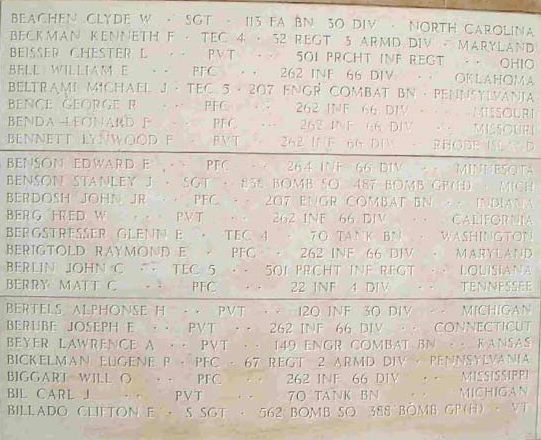 BEACHEN CLYDE W · SGT · 113 FA BN 30 DIV · NORTH CAROLINA
BECKMAN KENNETH F · TEC 4 · 32 REGT 3 ARMD DIV · MARYLAND
BEISSER CHESTER L · PVT · 501 PRCHT INF REGT · OHIO
BELL WILLIAM E · PFC · 262 INF 66 DIV · OKLAHOMA
BELTRAMI MICHAEL J · TEC 5 · 207 ENGR COMBAT BN · PENNSYLVANIA
BENCE GEORGE R · PFC · 262 INF 66 DIV · MISSOURI
BENDA LEONARD P · PFC · 262 INF 66 DIV · MISSOURI
BENNETT LYNWOOD F · PVT · 262 INF 66 DIV · RHODE ISLAND
BENSON EDWARD E · PFC · 264 INF 66 DIV · MINNESOTA
BENSON STANLEY J · SGT · 838 BOMB SQ 487 BOMB GP(H) · MICH
BERDOSH JOHN JR · PFC · 207 ENGR COMBAT BN · INDIANA
BERG FRED W · PVT · 262 INF 66 DIV · CALIFORNIA
BERGSTRESSER GLENN E · TEC 4 · 70 TANK BN · WASHINGTON
BERIGTOLD RAYMOND E · PFC · 262 INF 66 DIV · MARYLAND
BERLIN JOHN C · TEC 5 · 501 PRCHT INF REGT · LOUISIANA
BERRY MATT C · PFC · 22 INF 4 DIV · TENNESSEE
BERTELS ALPHONSE H · PVT · 120 INF 30 DIV · MICHIGAN
BERUBE JOSEPH E · PVT · 262 INF 66 DIV · CONNECTICUT
BEYER LAWRENCE A · PVT · 149 ENGR COMBAT BN · KANSAS
BICKELMAN EUGENE P · PFC · 67 REGT 2 ARMD DIV · PENNSYLVANIA
BIGGART WILL O · PFC · 262 INF 66 DIV · MISSISSIPPI
BIL CARL J · PVT · 70 TANK BN · MICHIGAN
BILLADO CLIFTON E · S SGT · 562 BOMB SQ 388 BOMB GP(H) · VT